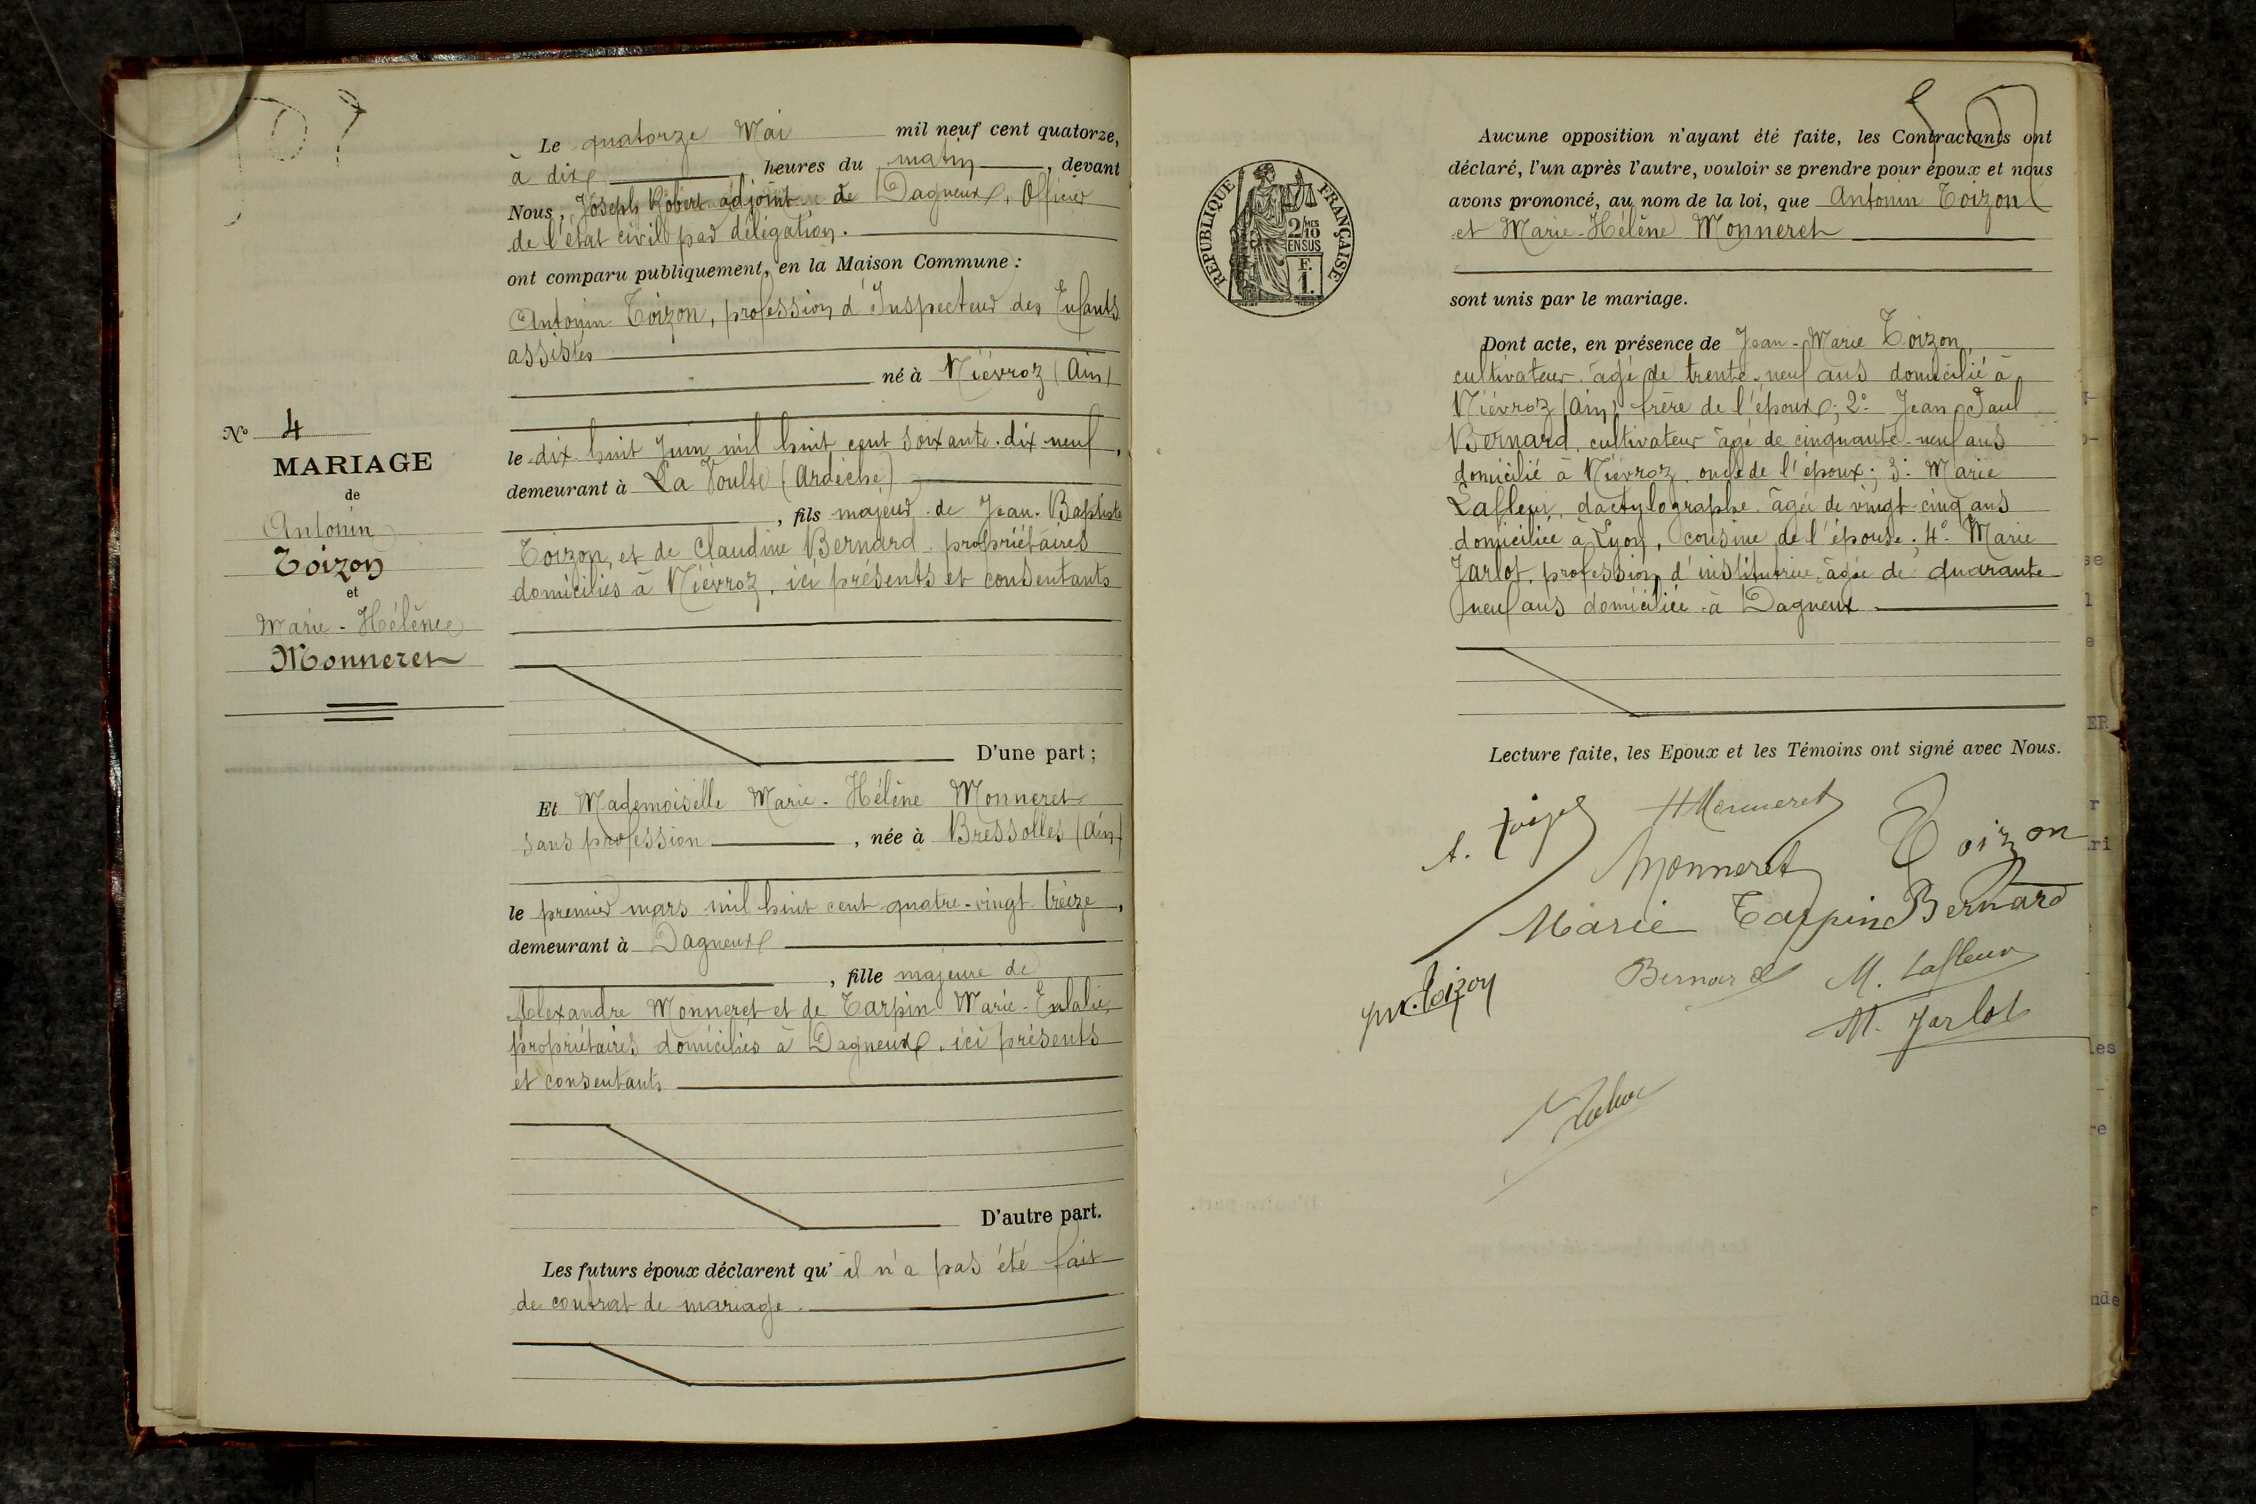 Nº 4
MARIAGE
de
Antonin
Toizon
et
Marie-Hélène
Monneret
Le quatorze Mai mil neuf cent quatorze,
à dix heures du matin, devant
Nous, Joseph Robert adjoint de Dagneux, Officier
de l'état civil par délégation.
ont comparu publiquement, en la Maison Commune :
Antonin Toizon, profession d'Inspecteur des Enfants
assistés
né à Niévroz (Ain)
le dix huit Juin mil huit cent soixante-dix-neuf,
demeurant à La Voulte (Ardèche)
, fils majeur de Jean-Baptiste
Toizon, et de Claudine Bernard propriétaires
domiciliés à Niévroz, ici présents et consentants
D'une part ;
Et Mademoiselle Marie-Hélène Monneret
sans profession, née à Bressolles (Ain)
le premier mars mil huit cent quatre-vingt treize,
demeurant à Dagneux
, fille majeure de
Alexandre Monneret et de Tarpin Marie-Eulalie,
propriétaires domiciliés à Dagneux, ici présents
et consentants
D'autre part.
Les futurs époux déclarent qu'il n'a pas été fait
de contrat de mariage.
RÉPUBLIQUE FRANÇAISE
2/10
EN SUS
F.
1.
Aucune opposition n'ayant été faite, les Contractants ont
déclaré, l'un après l'autre, vouloir se prendre pour époux et nous
avons prononcé, au nom de la loi, que Antonin Toizon
et Marie-Hélène Monneret
sont unis par le mariage.
Dont acte, en présence de Jean-Marie Toizon,
cultivateur âgé de trente-neuf ans domicilié à
Niévroz (Ain) frère de l'époux; 2º Jean Paul
Bernard, cultivateur âgé de cinquante-neuf ans
domicilié à Niévroz, oncle de l'époux; 3º Marie
Lafleur, dactylographe âgée de vingt-cinq ans
domiciliée à Lyon, cousine de l'épouse; 4º Marie
Jarlot, profession d'institutrice âgée de quarante
neuf ans domiciliée à Dagneux
Lecture faite, les Epoux et les Témoins ont signé avec Nous.
A. Toizon HMonneret
Monneret Toizon
Marie Tarpin Bernard
Bernard M. Lafleur
Toizon
M. Jarlot